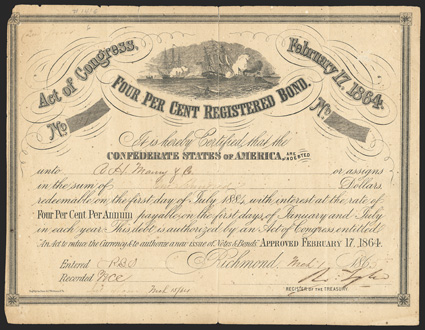 Act of Congress, February 17, 1864.
Four Per Cent Registered Bond.
No No
It is hereby Certified that the
CONFEDERATE STATES OF AMERICA, ARE INDEBTED
unto Maury & Co. or assigns
in the sum of Dollars
redeemable on the first day of July 1884, with interest at the rate of
Four Per Cent Per Annum payable on the first days of January and July
in each year. This debt is authorized by an Act of Congress entitled
An Act to reduce the Currency & to authorize a new issue of Notes & Bonds APPROVED FEBRUARY 17, 1864.
Entered Richmond, 186
Recorded
REGISTER OF THE TREASURY